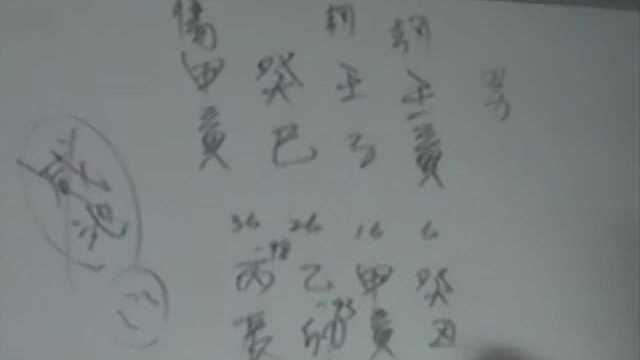 傷 劫 劫
甲 癸 壬 壬 男
寅 巳 子 寅
咸池
36 26 16 6
丙 乙 甲 癸
辰 卯 寅 丑